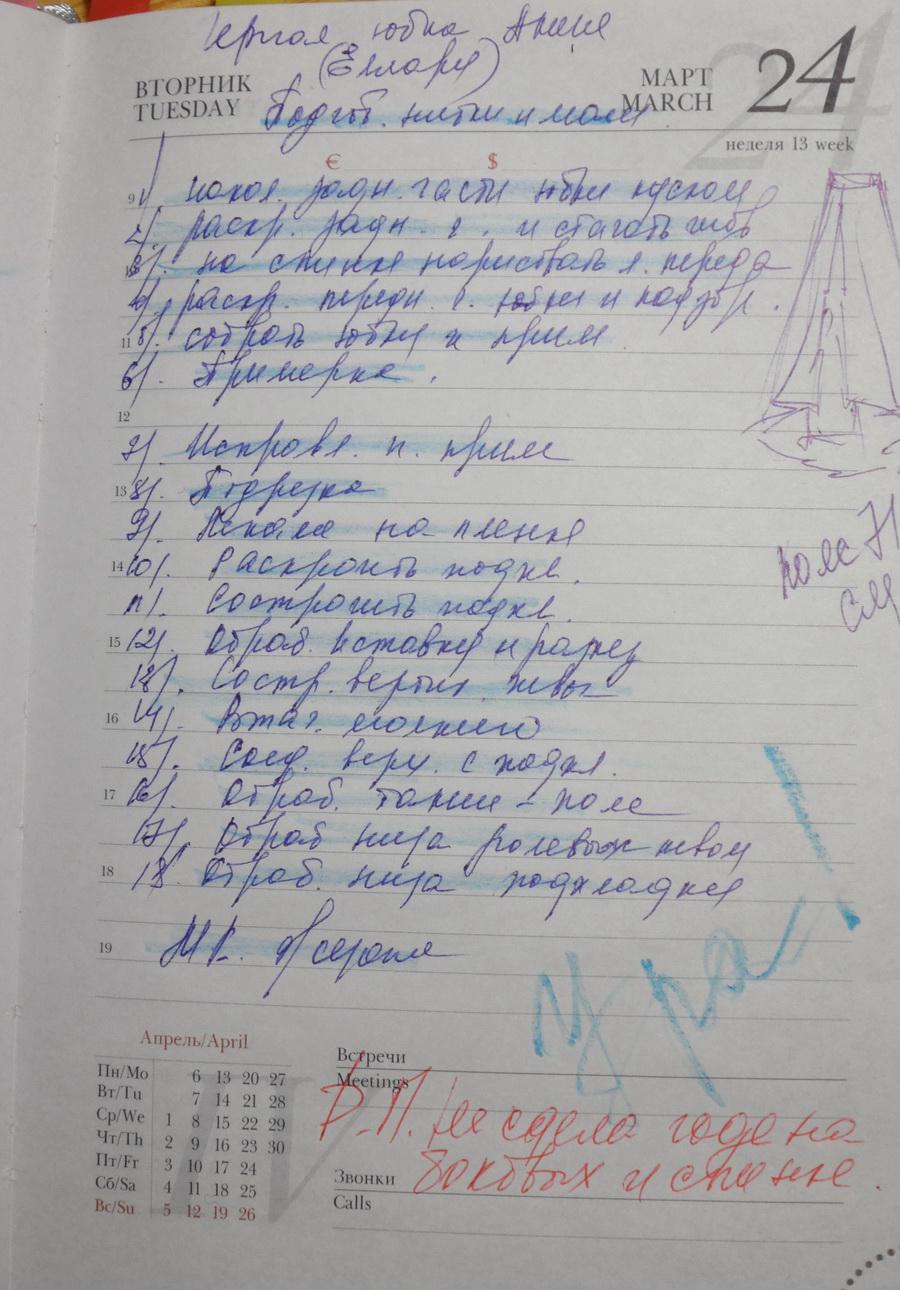 Черная юбка Анне
ВТОРНИК
TUESDAY
МАРТ
MARCH
24
Подгот. нитки и мол
неделя 13 week
€ $
9 1). накол. задн. части юбки куском
2). раскр. задн. ч. и стагать шов
10 3). на спинке нарисовать л. переда
4). раскр. передн. ч. юбки и подзор.
11 5). собрать юбку к прим
6). Примерка.
12
7). Исправл. п. прим
13 8). Подрезка
9). Лекала на пленке
14 10). Раскроить подкл.
11). Сострочить подкл.
15 12). Обраб. вставки и разрез
13). Состр. верхн. швы
16 14). Втач. молнию
15). Соед. верх. с подкл.
17 16). Обраб. талии - пояс
17). Обраб низа ролевых швом
18 18. Обраб. низа подкладки
19 МК.
пояс
Ура!
Апрель/April
Пн/Mo 6 13 20 27
Вт/Tu 7 14 21 28
Ср/We 1 8 15 22 29
Чт/Th 2 9 16 23 30
Пт/Fr 3 10 17 24
Сб/Sa 4 11 18 25
Вс/Su 5 12 19 26
IV
Встречи
Meetings
Не сдела годе на
боковых и спинке.
Звонки
Calls